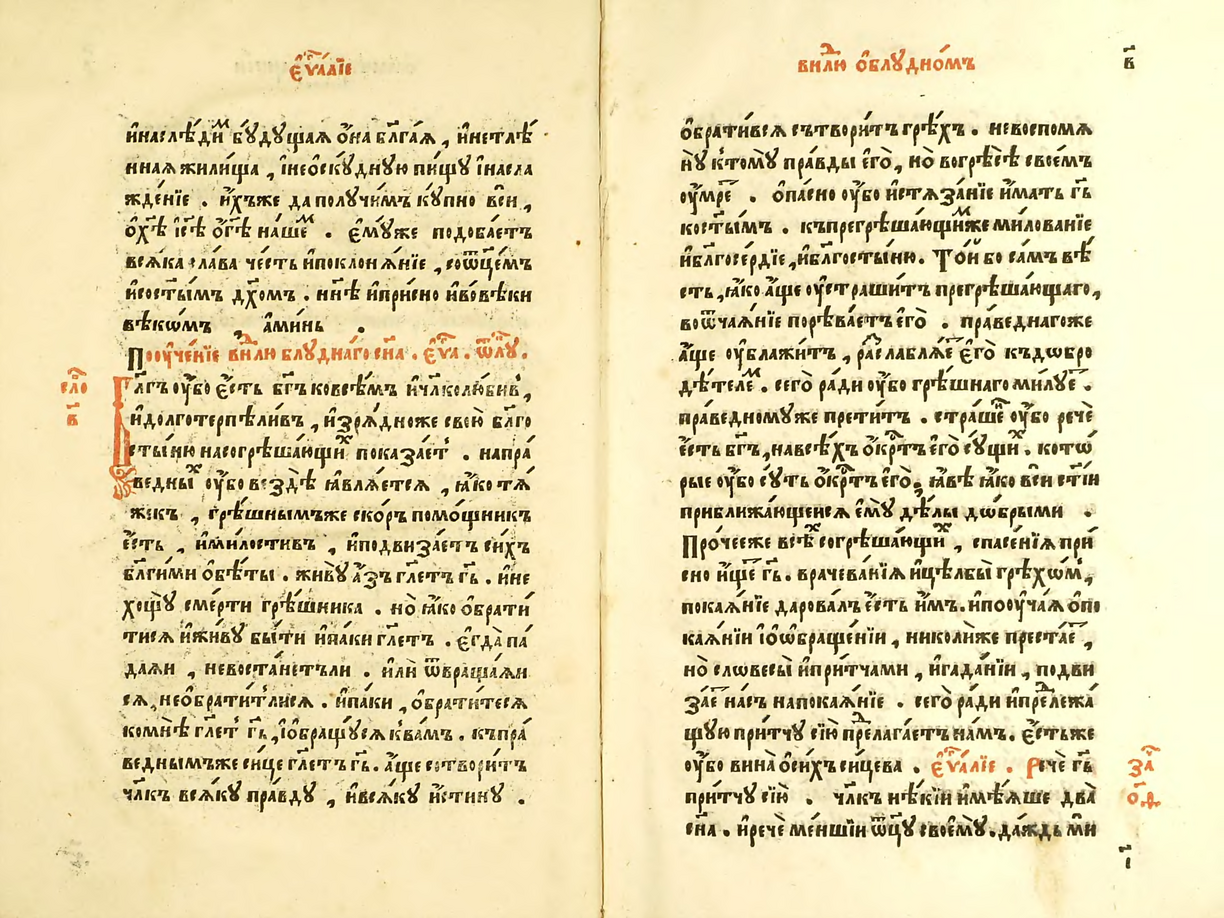 є҆ѵⷢ҇лїе
и҆наслѣдиⷨ бꙋдꙋщаѧ ѻ҆́на бл҃га́ѧ, и҆нетлѣ́
нная жили́ща, і҆нео҆скꙋ́днꙋю пи́щꙋ і҆насла
жде́нїе. и҆́хъже да полꙋчи́мъ кꙋ́пно всѝ,
ѡ҆хⷭ҇ѣ і҆с҃ѣ ѻ҆ г҃ѣ на́шеⷨ. є҆мꙋ́же подоба́етъ
всѧ́ка сла́ва че́сть и҆поклонѧ́нїе, соѿц҃е́мъ
и҆сост҃ы́мъ дх҃омъ. нн҃ѣ и҆при́сно и҆вовѣ́ки
вѣкѡ́мъ, а҆ми́нь.
Поᲂу҆че́нїе внⷣлю блꙋ́днаго сн҃а. є҆ѵⷢ҇а. ѿлꙋ.
Бл҃гъ ᲂу҆́бо є҆́сть бг҃ъ ковсѣ́мъ и҆чл҃колю́бивъ,
и҆долготерпѣли́въ, и҆зрѧ́дноже свою̀ бл҃го
сты́ню насогрѣша́ющиⷯ показа́етъ. напра́
ведныⷯ ᲂу҆́бо вездѣ̀ ꙗ҆влѧ́етсѧ, ꙗ҆́ко тѧ́
жекъ, грѣ́шнымъже ско́ръ помо́щникъ
є҆́сть, и҆ми́лостивъ, и҆подвиза́етъ си́хъ
бл҃ги́ми о҆бѣ́ты. живꙋ̀ а҆́зъ гл҃етъ гь҃. и҆не
хощꙋ̀ сме́рти грѣ́шника. но̀ ꙗ҆́ко о҆брати́
тисѧ и҆жи́вꙋ бы́ти и҆па́ки гл҃етъ. є҆гда̀ па́
даѧи, невоста́нетъли. и҆лѝ ѿвраща́ѧи
сѧ, необрати́тлисѧ. и҆па́ки, о҆брати́тесѧ
комнѣ̀ гл҃етъ гь҃, і҆о҆бращꙋ́сѧ к̾ва́мъ. къпра́
веднымъже си́це гл҃етъ гь҃. а҆́ще сотвори́тъ
чл҃къ всѧ́кꙋ пра́вдꙋ, и҆всѧ́кꙋ и҆́стинꙋ.
сло́
в҃
внⷣлю ѻ҆блꙋ́дномъ
в҃
ѻ҆брати́всѧ сътвори́тъ грѣ́хъ. невоспомѧ
нꙋ̀ ктомꙋ̀ пра́вды є҆гѡ̀, но̀ вогрѣ́сѣ свое́мъ
ᲂу҆́мре. ѻ҆па́сно ᲂу҆́бо и҆стѧза́нїе и҆́мать гь҃
кост҃ы́мъ. къпрегрѣша́ющиⷨже милованїе
и҆бл҃госе́рдїе, и҆бл҃госты́ню. То́й бо са́мъ вѣ́
сть, ꙗ҆́ко а҆́ще ᲂу҆страши́тъ прегрѣша́ющаго,
воѿча́ѧнїе порѣва́етъ є҆го̀. пра́веднагоже
а҆́ще ᲂу҆блажи́тъ, разслаблѧ́е є҆го̀ къдѡбро
дѣ́телеⷨ. сего̀ ра́ди ᲂу҆́бо грѣ́шнаго ми́лꙋе.
пра́ведномꙋже прети́тъ. стра́шеⷩ҇ ᲂу҆́бо речѐ
є҆́сть бг҃ъ, навсѣ́хъ ѻ҆́крⷭ҇тъ є҆го̀ сꙋ́щиⷯ. кото́
рые ᲂу҆́бо сꙋ́ть ѻ҆́крⷭ҇тъ є҆го̀, ꙗ҆́вѣ ꙗ҆́ко всѝ ст҃і́и
приближа́ющеисѧ є҆мꙋ̀ дѣ́лы дѡ́брыми.
Про́чееже всѣⷯ согрѣша́ющиⷯ, спасе́нїѧ при́
сно и҆́ще гь҃. врачева́нїѧ и҆цѣлбы̀ грѣхѡ́мъ,
покаѧ́нїе дарова́лъ є҆́сть и҆́мъ. и҆поᲂу҆ча́ѧ ѻ҆по
каѧ́нїи і҆о҆ѡ҆браще́нїи, николи́же преста́е,
но̀ словесы̀ и҆при́тчами, и҆гада́нїи, подви
за́е на́съ напокаѧ́нїе. сего̀ ра́ди и҆преⷣлежа́
щꙋю при́тчꙋ сїю̀ преⷣлага́етъ на́мъ. є҆́стьже
ᲂу҆́бо вина̀ ѻ҆си́хъ си́цева. є҆ѵⷢ҇лїе. Речѐ гь҃
при́тчꙋ сїю̀. чл҃къ нѣ́кїи и҆мѣ́ѧше два̀
сн҃а. и҆речѐ ме́ншїи ѿц҃ꙋ своемꙋ̀. да́ждь мѝ
за
ѻ҃ѳ
і҃